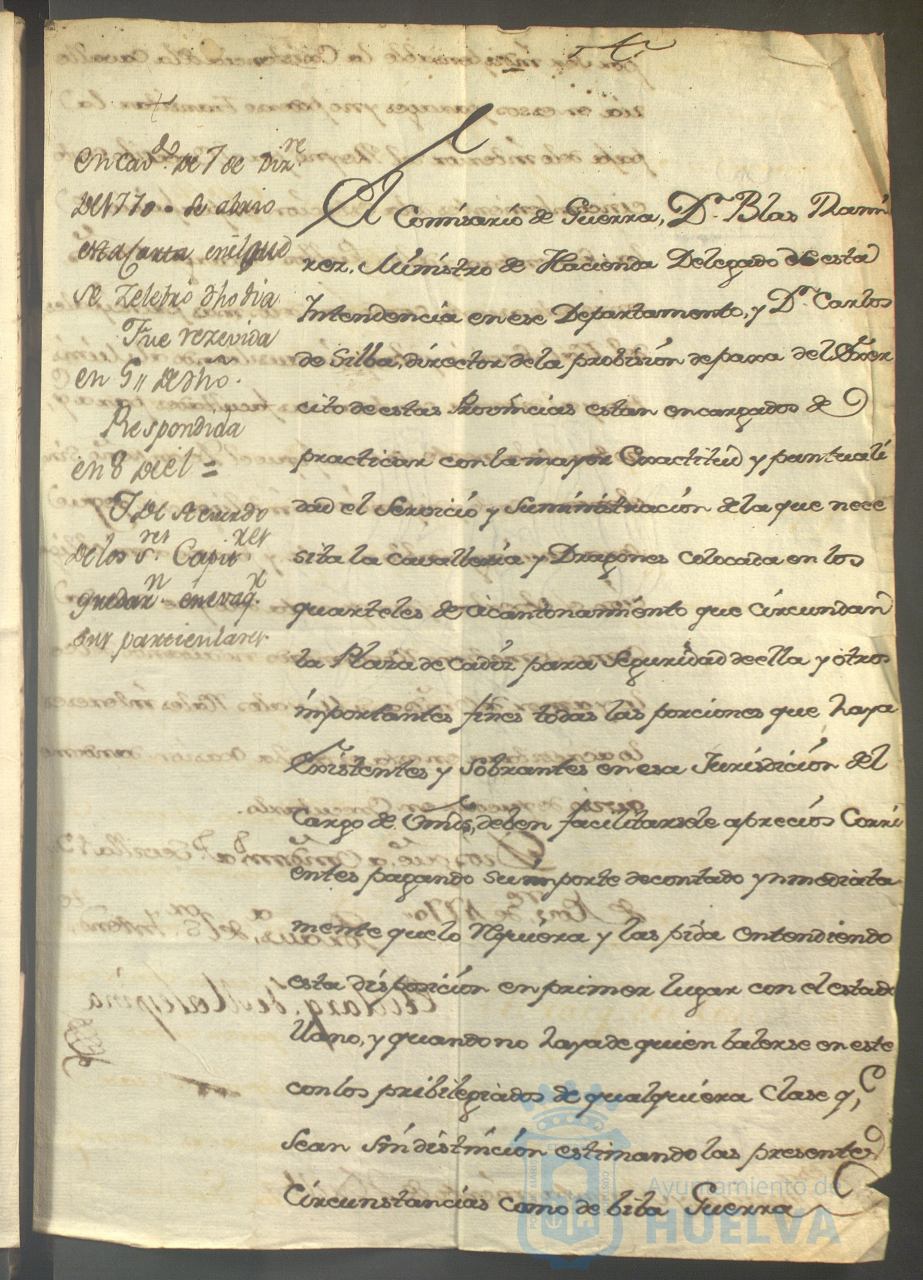 en cavdo. de 7 de Dizre.
de 1770. se abrio
esta Carta en el que
se Zelebró dho dia
Fue rezevida
en 5 de dho.
Respondida
en 8 de él =
I de Acuerdo
de los Sres. Capitres
quedarn. en
sus particulares
El Comisario de Guerra, Dn. Blas Rami
rez, Ministro de Hacienda Delegado de esta
Intendencia en ese Departamento, y Dn. Carlos
de Silba, director de la probisión de paxa del Exer
cito de estas Provincias estan encargados de
practicar con la mayor Exactitud y puntuali
dad el Servicio y Suministración de la que nece
sita la Cavalleria y Dragones colocada en los
quarteles de acantonamiento que Circundan
la Plaza de Cadiz para Seguridad de ella y otros
importantes fines todas las porciones que haya
Existentes y Sobrantes en esa Jurisdición del
Cargo de Vmds, deben facilitarsele a precios Corri
entes pagando su importe de contado ynmediata
mente que lo rrquiera y las pida entendiendo
esta disposición en primer lugar con el estado
llano, y quando no haya de quien balerse en este
con los pribilegiados de qualquiera Clase q,e
Sean Sin distinción estimando las presentes
Circunstancias como de biba Guerra
Ayuntamiento de
HUELVA